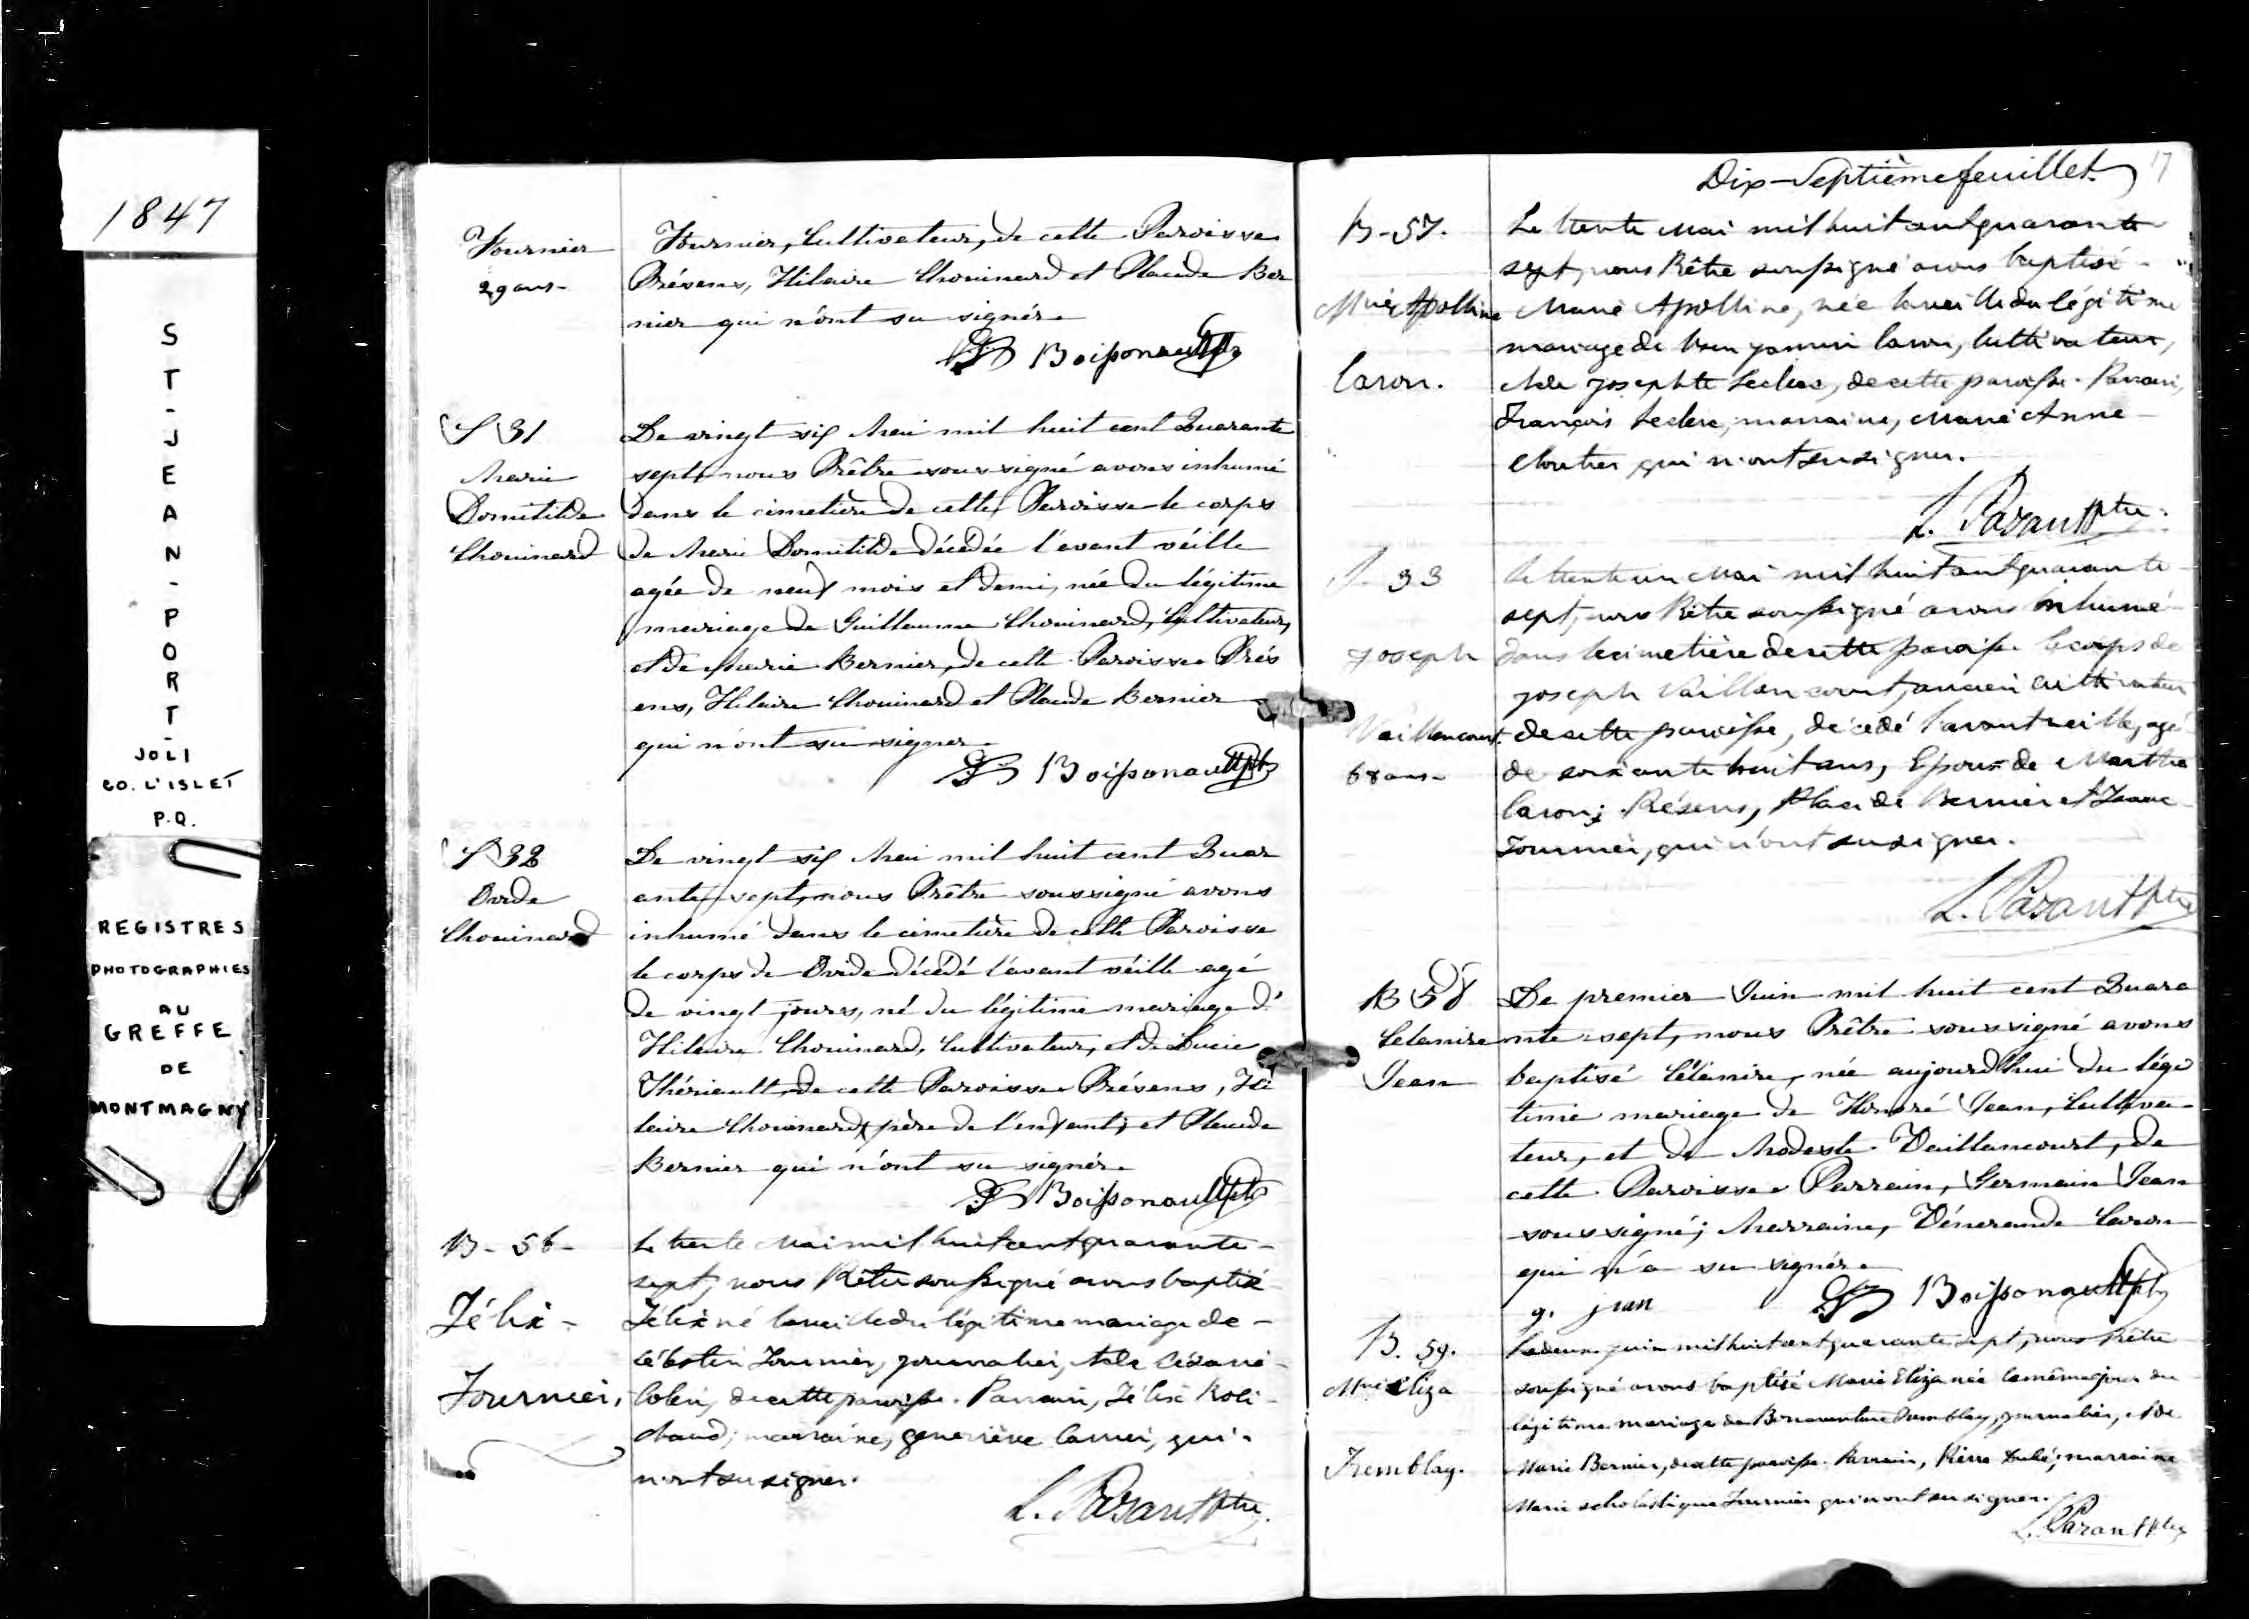 1847
ST-JEAN-PORT-
JOLI
CO. L'ISLET
P.Q.
REGISTRES
PHOTOGRAPHIES
AU
GREFFE
DE
MONTMAGNY
Fournier
29 ans-
Fournier, Cultivateur, de cette Paroisse
Présens, Hilaire Chouinard et Placide Ber
nier qui n'ont su signér.
Boissonault ptr
S 31
Marie
Domitilde
Chouinard
Le vingt six Mai mil huit cent Quarante
sept, nous Prêtre soussigné avons inhumé
dans le cimetière de cette Paroisse le corps
de Marie Domitilde décédée l'avant véille
agée de neuf mois et demi, née du légitime
mariage de Guillaume Chouinard, Cultivateur,
et de Marie Bernier, de cette Paroisse Prés
ens, Hilaire Chouinard et Placide Bernier
qui n'ont su signer
Boissonault ptr
S 32
Ovide
Chouinard
Le vingt six Mai mil huit cent Quar
ante sept, nous Prêtre soussigné avons
inhumé dans le cimetière de cette Paroisse
le corps de Ovide décédé l'avant véille agé
de vingt jours, né du légitime mariage d'
Hilaire Chouinard, Cultivateur, et de Lucie
Thériault, de cette Paroisse Présens, Hi
laire Chouinard, père de l'enfant, et Placide
Bernier qui n'ont su signér.
Boissonault ptr
B-56-
Félix-
Fournier,
Le trente Mai mil huit cent quarante-
sept, nous Prêtre soussigné avons baptisé
Félix né la veille du légitime mariage de-
Célestin Fournier, journalier, et de Césarie
Colin, de cette paroisse. Parrain, Félix Robi-
chaud; marraine, genevière, qui
n'ont su signer.
L. Parant Ptre.
Dix-Septième feuillet. 17
B-57.
Mrie Apolline
Caron.
Le trente Mai mil huit cent quarante
sept, nous Prêtre soussigné avons baptisé-
Marie Apolline, née la veille du légitime
mariage de Benjamin Caron, Cultivateur,
et de josephte Leclerc, de cette paroisse. Parrain,
François Leclerc; marraine, Marie Anne
Cloutier, qui n'ont su signer.
L. Parant Ptre.
S-33
joseph
Vaillancourt.
68 ans-
Le trente un Mai mil huit cent quarante
sept, nous Prêtre soussigné avons inhumé
dans le cimetière de cette paroisse le corps de
joseph Vaillancourt, ancien cultivateur
de cette paroisse, décédé l'avant veille, agé
de soixante huit ans, Epoux de Marthe
Caron; Présens, Placide Bernier et Isaac
Fournier, qui n'ont su signer.
L. Parant Ptre
B 58
Celanire
Jean
Le premier Juin mil huit cent Quara
nte sept, nous Prêtre soussigné avons
baptisé Célanire, née aujourdhui du légi
time mariage de Honoré Jean, Cultiva-
teur, et de Modeste Vaillancourt, de
cette Paroisse Parrain, Germain Jean
soussigné; Marraine, Vénerande Caron
qui n'a su signér.
g. jean
Boissonault ptr
B. 59.
Mrie Eliza
Tremblay.
Le deux juin mil huit cent quarante sept, nous Prêtre
soussigné avons baptisé Marie Eliza née le même jour du
légitime mariage de Bonaventure Tremblay, journalier, et de
Marie Bernier, de cette paroisse. Parrain, Pierre Dubé; marraine
Marie scholastique Fournier qui n'ont su signer.
L. Parant Ptre